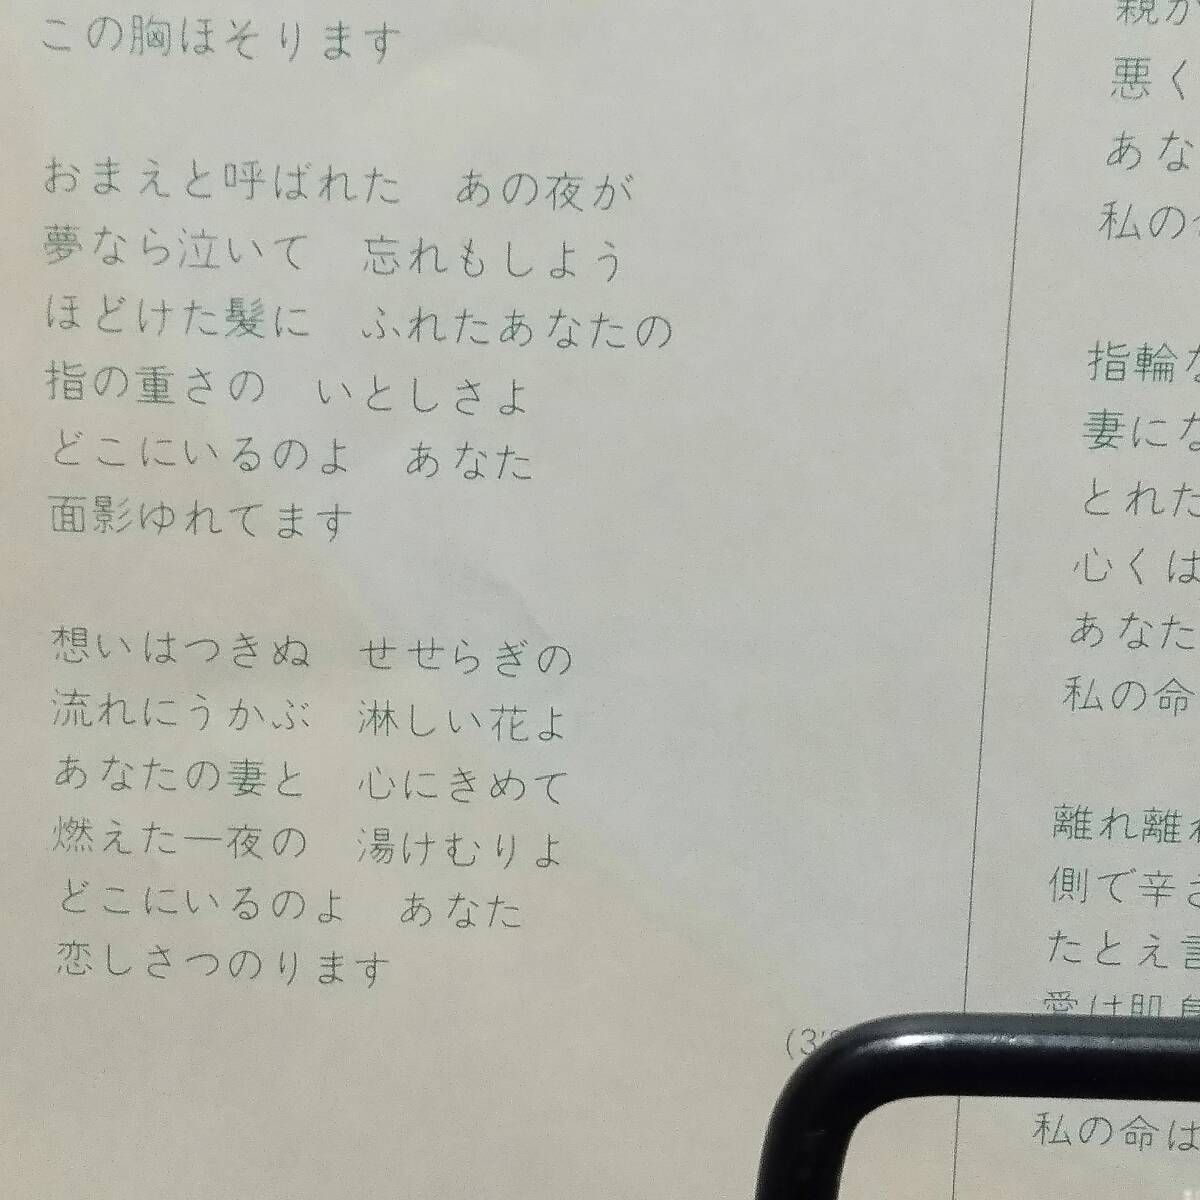 この胸ほそります
おまえと呼ばれた　あの夜が
夢なら泣いて　忘れもしよう
ほどけた髪に　ふれたあなたの
指の重さの　いとしさよ
どこにいるのよ　あなた
面影ゆれてます
想いはつきぬ　せせらぎの
流れにうかぶ　淋しい花よ
あなたの妻と　心にきめて
燃えた一夜の　湯けむりよ
どこにいるのよ　あなた
恋しさつのります
(3'
親が
悪く
あな
私の
指輪な
妻にな
とれた
心くは
あなた
私の命
離れ離れ
側で辛さ
たとえ言
愛は肌
私の命は